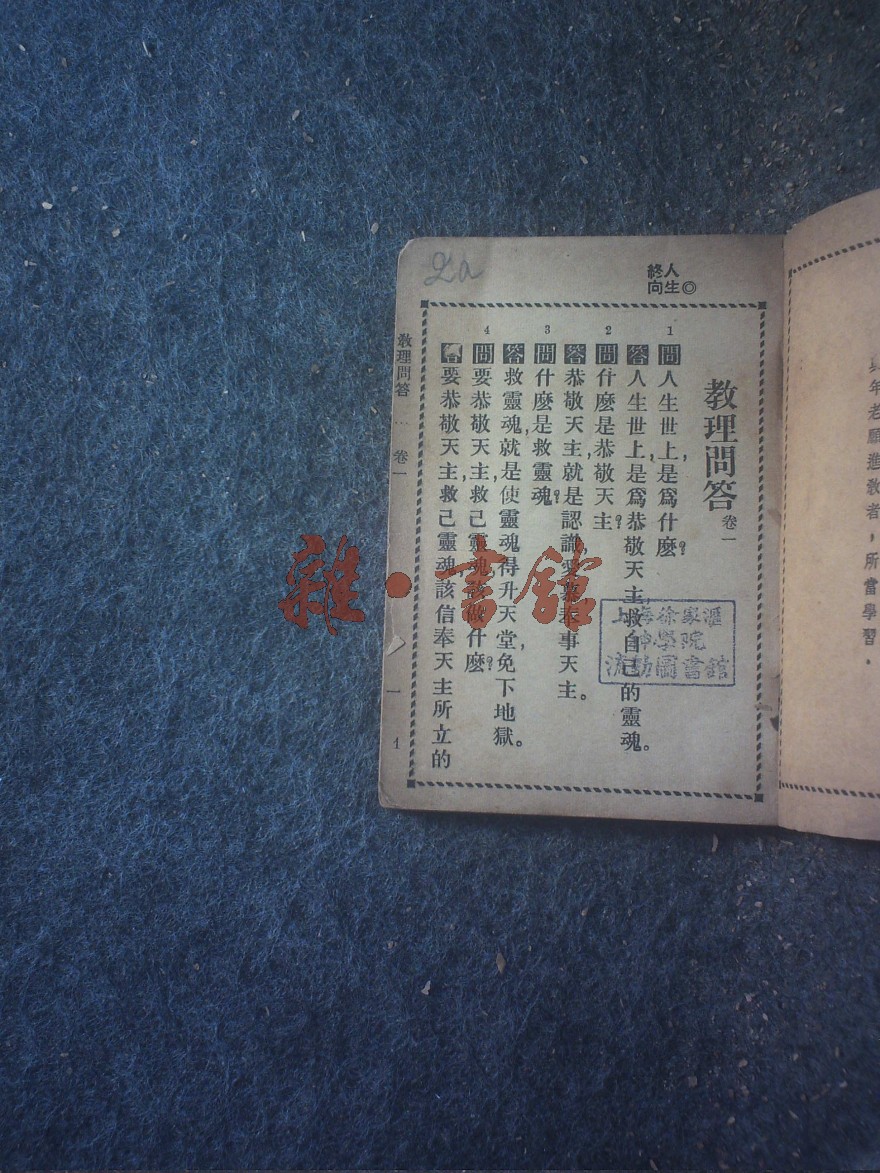 年老願進教者，所當學習．
◎人生
終向
教理問答 卷一
1 問 人生世上，是爲什麽？
答 人生世上，是爲恭敬天主，救自己的靈魂。
2 問 什麽是恭敬天主？
答 恭敬天主，就是認識，愛慕，奉事天主。
3 問 什麽是救靈魂？
答 救靈魂，就是使靈魂得升天堂，免下地獄。
4 問 要恭敬天主，救己靈魂，該做什麽？
答 要恭敬天主，救己靈魂，該信奉天主所立的
教理問答 … 卷一 一 1
上海徐家滙
神學院
流動圖書館
雜·書館